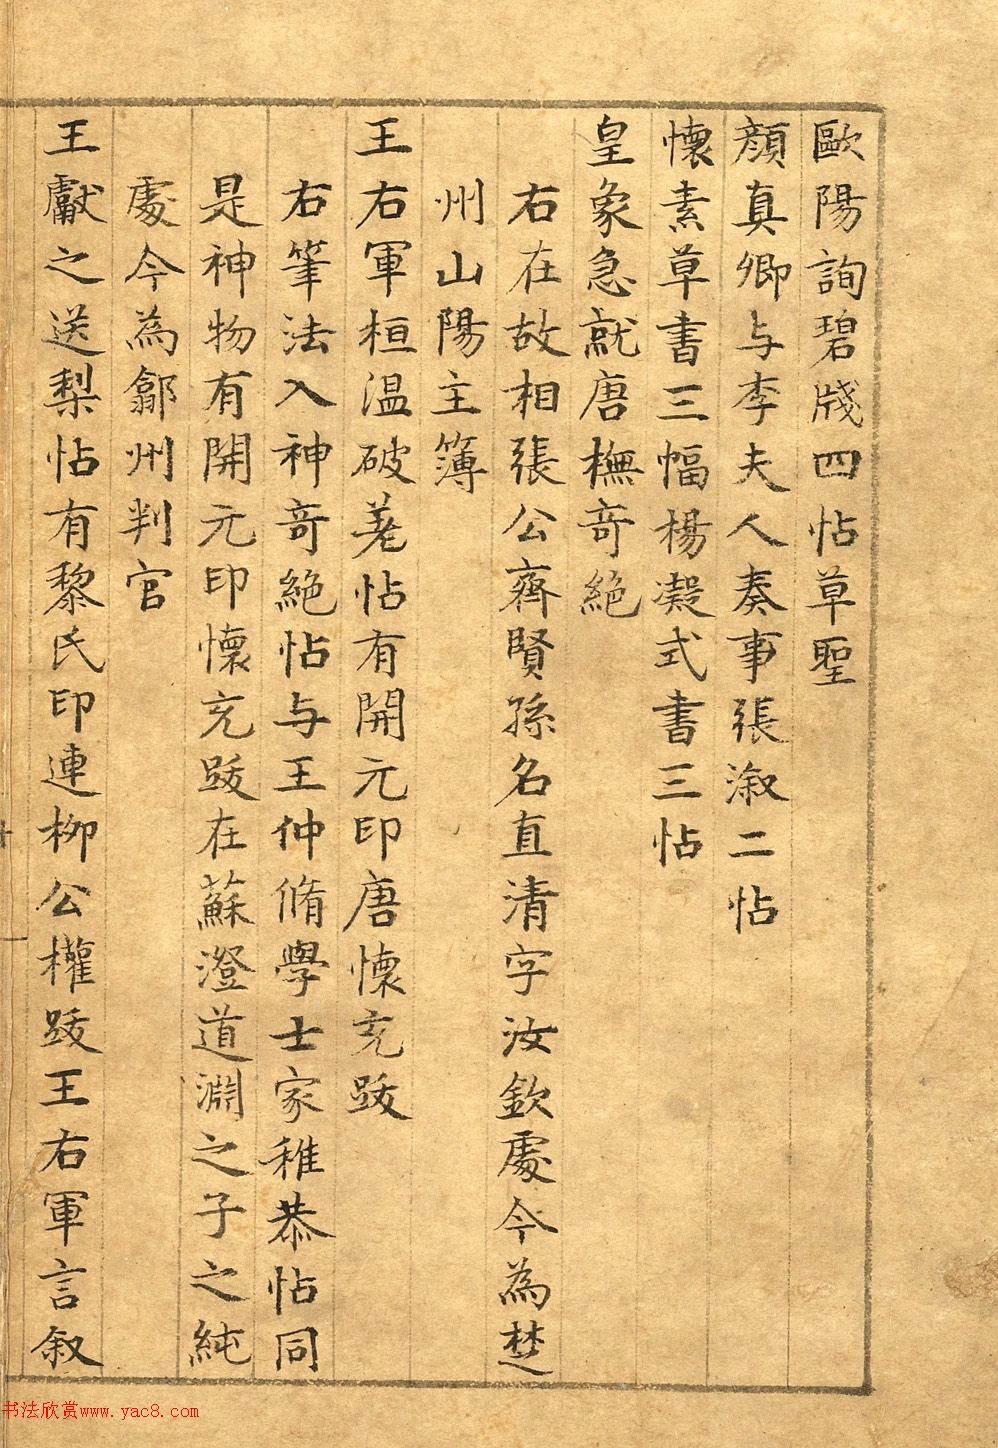 歐陽詢碧牋四帖草聖
顔真卿与李夫人奏事張溆二帖
懷素草書三幅楊凝式書三帖
皇象急就唐橅竒絶
右在故相張公齊賢孫名直清字汝欽處今為楚
州山陽主簿
王右軍桓温破羌帖有開元印唐懷充跋
右筆法入神竒絶帖与王仲脩學士家稚恭帖同
是神物有開元印懷充跋在蘇澄道淵之子之純
處今為鄜州判官
王獻之送梨帖有黎氏印連柳公權跋王右軍言叙
书法欣赏www.yac8.com